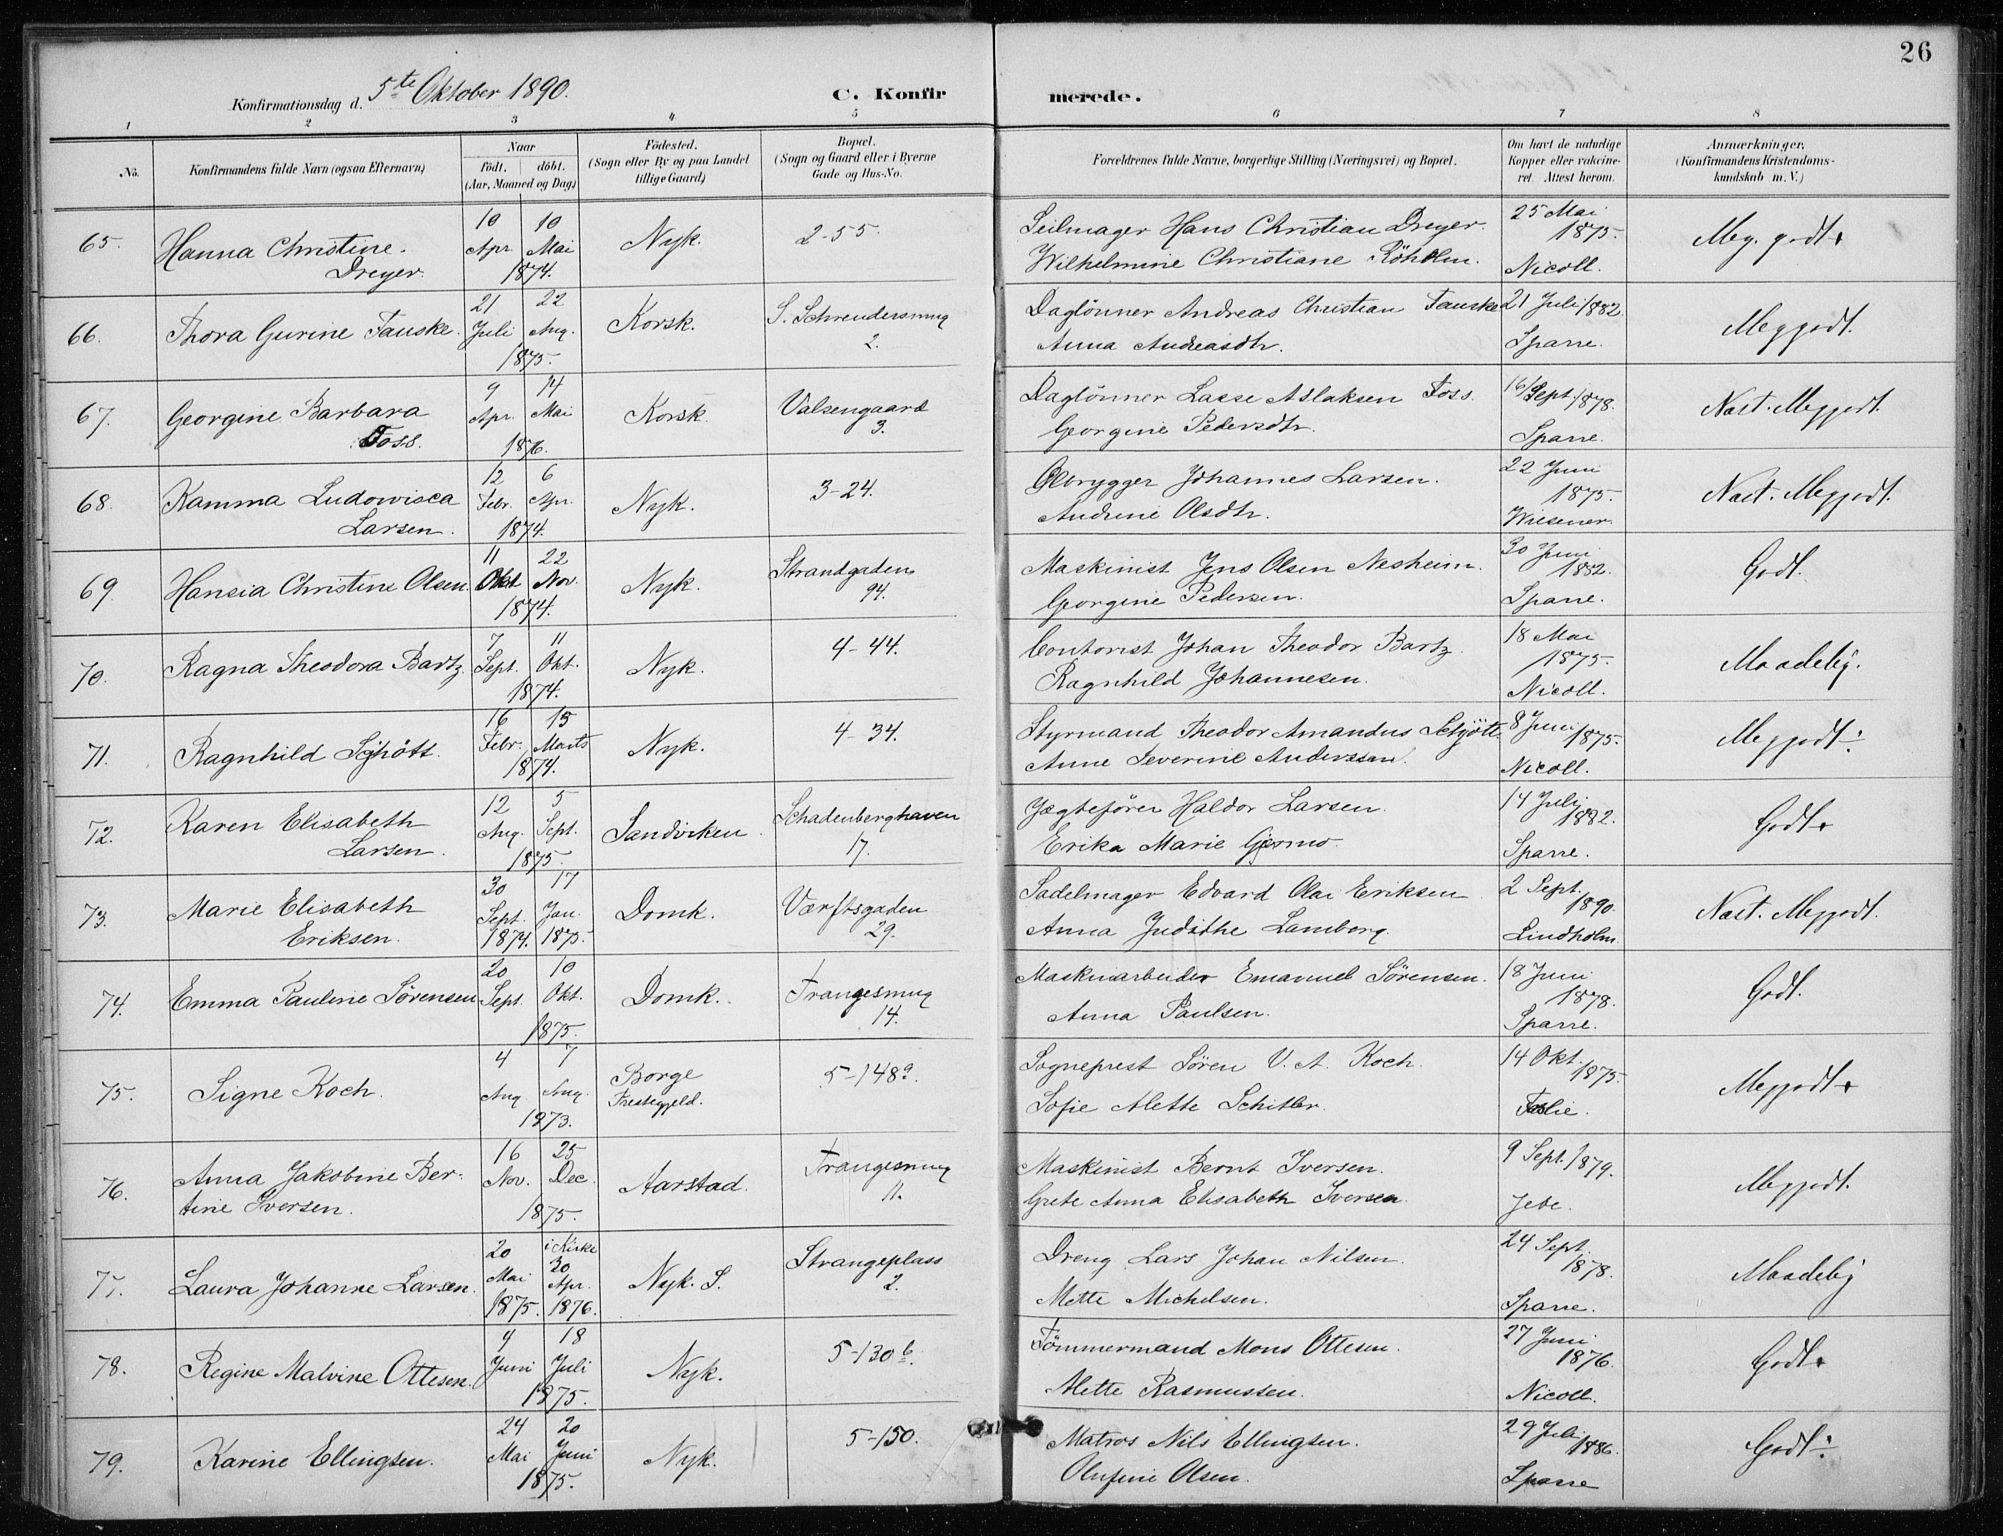 26
Konfirmationsdag d. 5te Oktober 1890.
C. Konfirmerede.
1 2 3 4 5 6 7 8
No.
Konfirmandens fulde Navn (ogsaa Efternavn)
Naar
födt. döbt.
(Aar, Maaned og Dag)
Födested.
(Sogn eller By og paa Landet
tillige Gaard)
Bopæl.
(Sogn og Gaard eller i Byerne
Gade og Hus-No.
Forældrenes fulde Navne, borgerlige Stilling (Næringsvei) og Bopæl.
Om havt de naturlige
Kopper eller vakcine-
ret. Attest herom.
Anmærkninger.
(Konfirmandens Kristendoms-
kundskab m. V.)
65. Hanna Christine Dreyer. 10 Apr. 10 Mai 1874. Nyk. 2-55.
Seilmager Hans Christian Dreyer.
Wilhelmine Christiane
25 Mai 1875. Nicoll. Meg. godt+
66. Thora Gurine Tauske. 21 Juli 22 Aug. 1875. Korsk. 2.
Daglönner Andreas Christian Tauske
Anna Andreasdtr.
21 Juli 1882. Sparre. Meggodt.
67. Georgine Barbara Foss. 9 Apr. 14 Mai 1876. Korsk. Valsengaard 3.
Daglönner Lasse Aslaksen Foss.
Georgine Pedersdtr.
16 Sept. 1878. Sparre. Næst. Meggodt.
68. Kamma Ludowisca Larsen. 12 Febr. 6 Apr. 1874. Nyk. 3-24.
Ølbrygger Johannes Larsen.
Andrine Olsdtr.
22 Juni 1875. Wiesener. Næst. Meggodt.
69. Hansia Christine Olsen. 11 Okt. 22 Nov. 1874. Nyk. Strandgaden 94.
Maskinist Jens Olsen Nesheim.
Georgine Pedersen.
30 Juni 1882. Sparre. Godt.
70. Ragna Theodora Bartz. 7 Sept. 11 Okt. 1874. Nyk. 4-44.
Contorist Johan Theodor Bartz.
Ragnhild Johannesen.
18 Mai 1875. Nicoll. Maadelig.
71. Ragnhild Sjöhött. 16 Febr. 15 Marts 1874. Nyk. 4-34.
Styrmand Theodor Amandus
Anne Severine Anderssen.
8 Juni 1875. Nicoll. Meggodt÷
72. Karen Elisabeth Larsen. 12 Aug. 5 Sept. 1875. Sandviken. Schadenberghaven 17.
Jægtefører Haldor Larsen.
Erika Marie
14 Juli 1882. Sparre. Godt+
73. Marie Elisabeth Eriksen. 30 Sept. 1874. 17 Jan. 1875. Domk. Værftsgaden 29.
Sadelmager Edvard Olai Eriksen
Anna Judithe Lamberg.
2 Sept. 1890. Lindholm. Næst. Meggodt.
74. Emma Pauline Sörensen 20 Sept. 10 Okt. 1875. Domk. Trangesmug 14.
Maskinarbeider Emanuel Sörensen.
Anna Paulsen.
18 Juni 1878. Sparre. Godt.
75. Signe Koch. 4 Aug. 7 Aug. 1873. Borge Prestegjeld. 5-148a.
Sogneprest Sören V. A. Koch.
Sofie Alette
14 Okt. 1875. Meggodt+
76. Anna Jakobine Ber-
tine Iversen. 16 Nov. 25 Dec. 1875. Aarstad. Trangesmug 11.
Maskinist Bernt Iversen.
Grete Anna Elisabeth Iversen.
9 Sept. 1879. Jebe. Meggodt.
77. Laura Johanne Larsen. 20 Mai 1875. i Kirke 30 Apr. 1876. Nyk. S. Strangeplass 2.
Dreng Lars Johan Nilsen.
Mette Michelsen.
24 Sept. 1878. Sparre. Maadelig
78. Regine Malvine Ottesen. 4 Juni 18 Juli 1875. Nyk. 5-130b.
Tömmermand Mons Ottesen.
Mette Rasmussen.
27 Juni 1876. Nicoll. Godt+
79. Karine Ellingsen. 24 Mai 20 Juni 1875. Nyk. 5-150.
Matros Nils Ellingsen.
Olufine Olsen.
29 Juli 1886. Sparre Godt÷